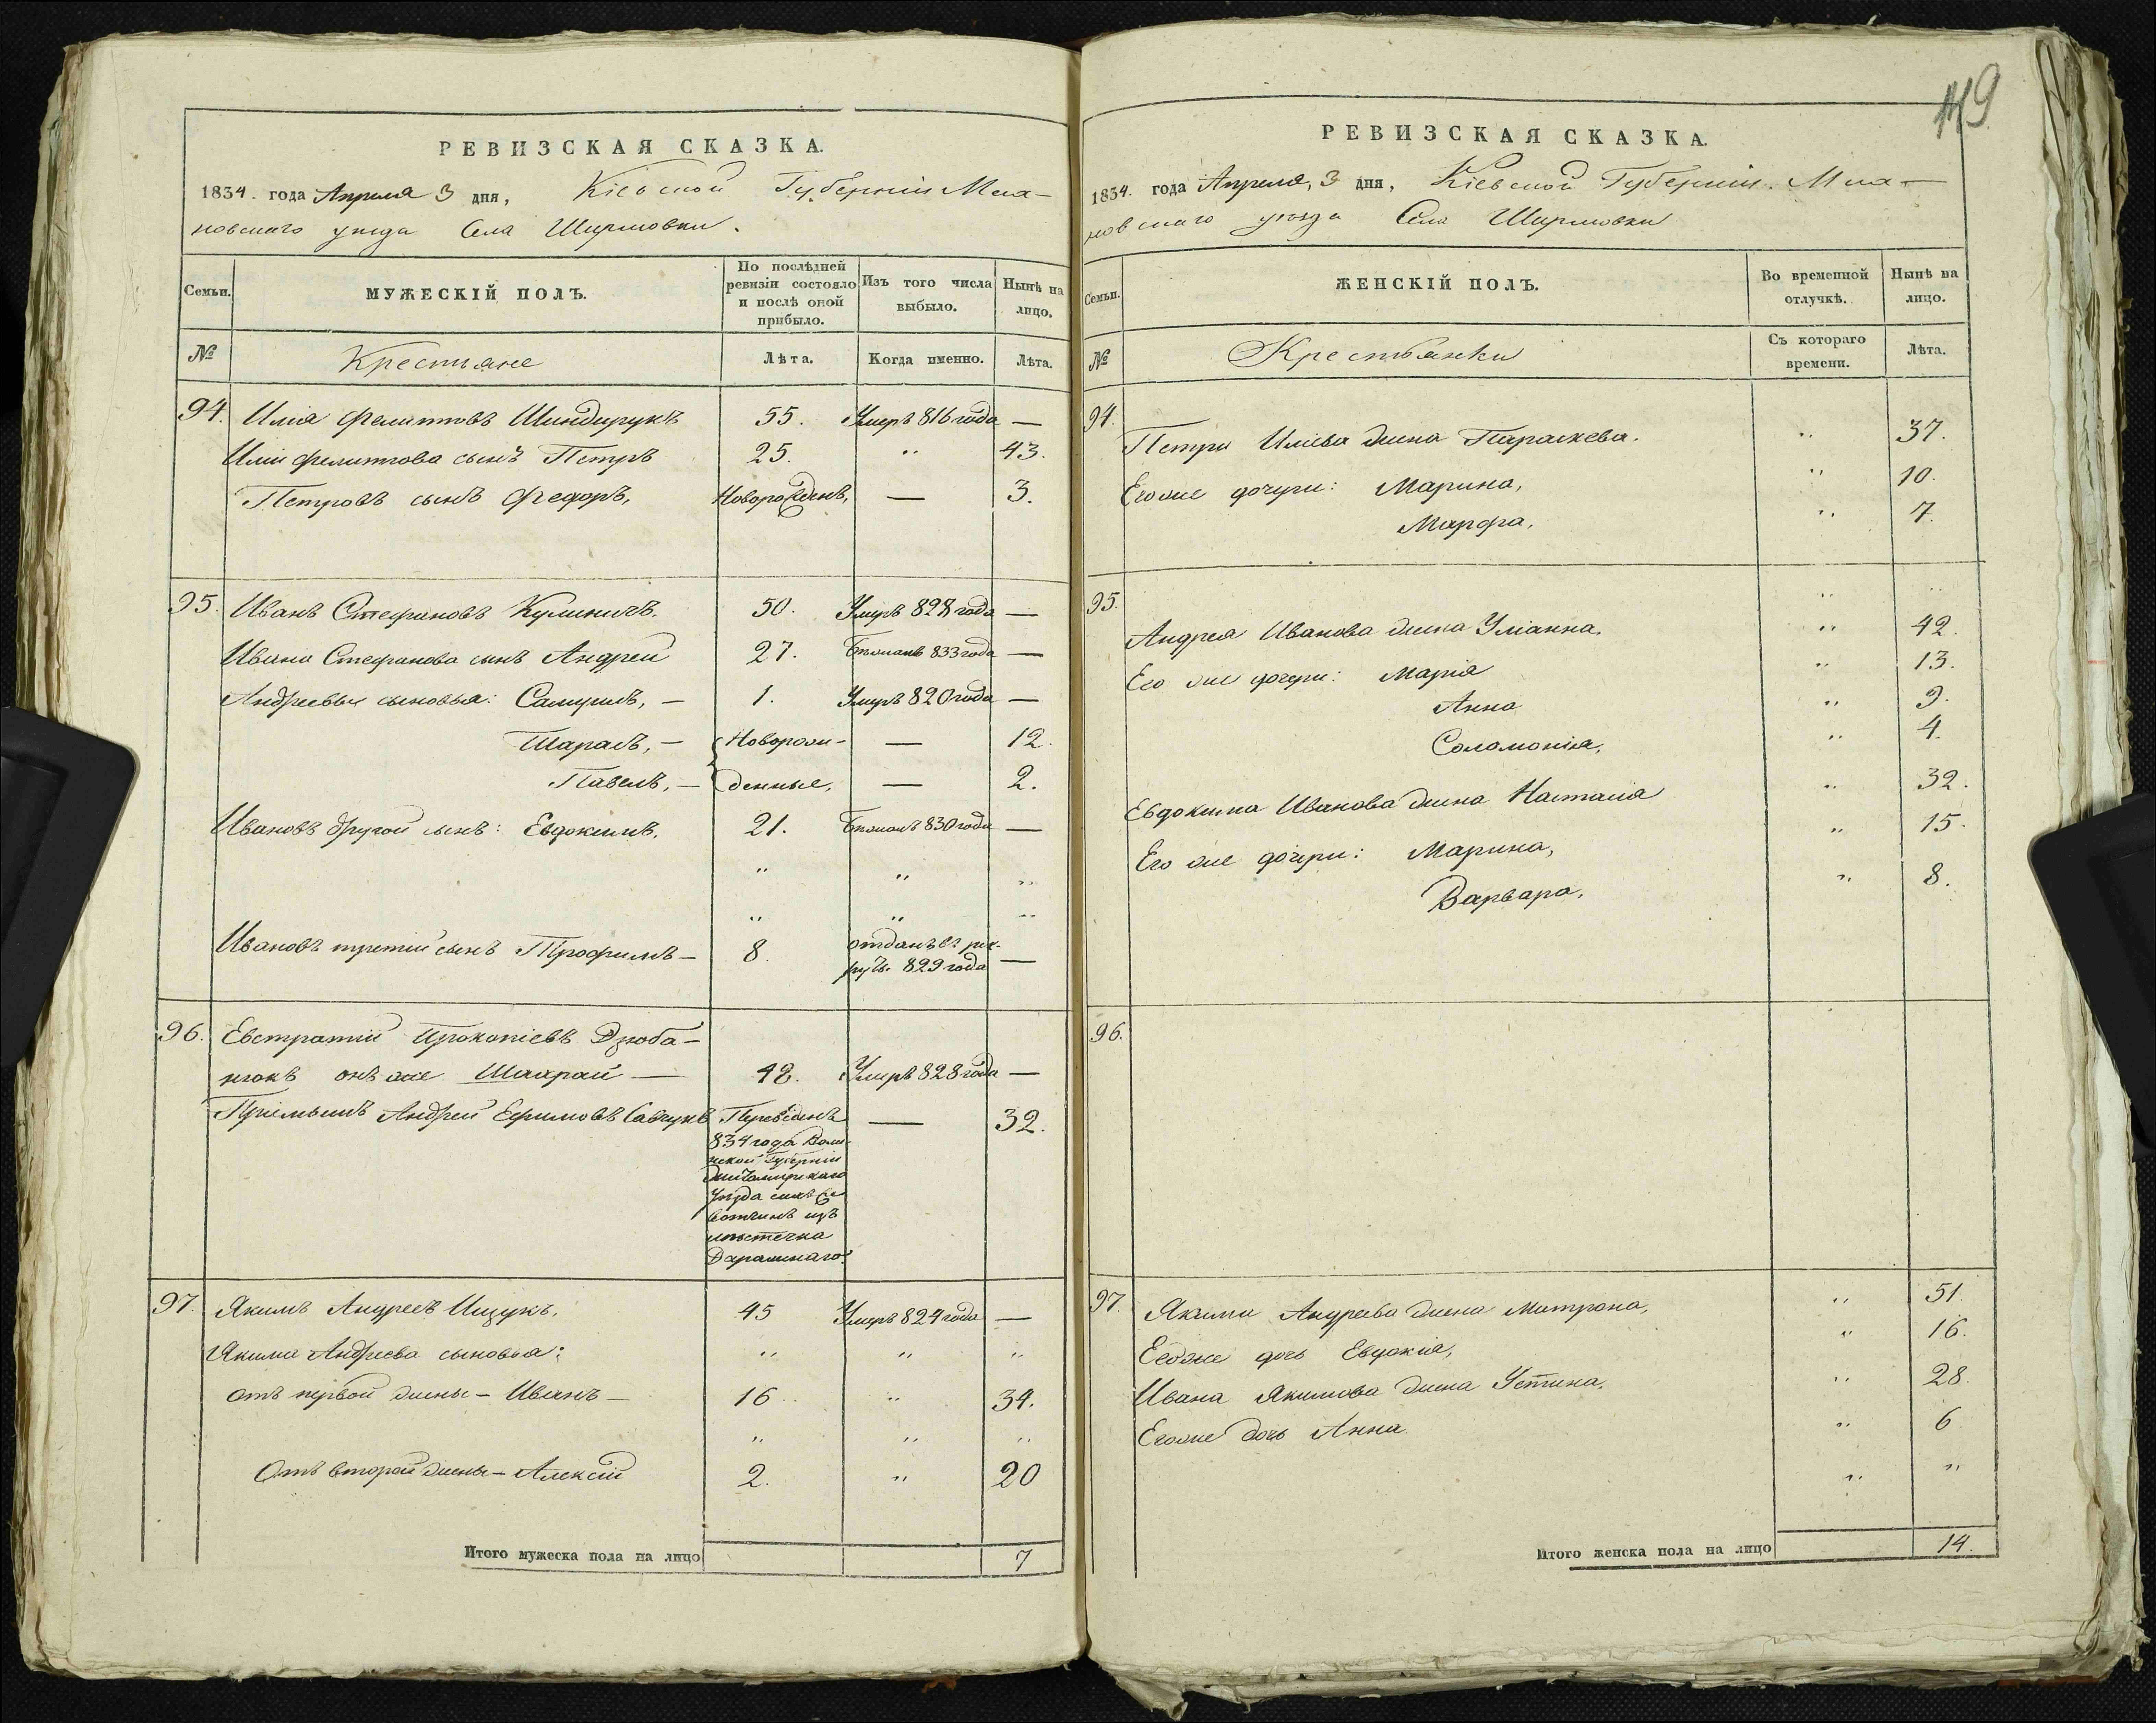 РЕВИЗСКАЯ СКАЗКА.
1834. года Апреля 3 дня, Кіевской Губерніи Мха-
новскаго уезда Села Ширмовки.
Семьи. МУЖЕСКІЙ ПОЛЪ. По послѣдней ревизіи состояло и послѣ оной прибыло. Изъ того числа выбыло. Нынѣ на лицо.
№ Крестьяне Лѣта. Когда именно. Лѣта.
94. Илія Филиповъ Шиндирукъ 55. Умеръ 816 года —
Иліи Филипова сынъ Петръ 25. " 43.
Петровъ сынъ Федоръ, Новорожденъ, — 3.
95. Иванъ Стефановъ Кулиничъ. 50. Умеръ 828 года —
Ивана Стефанова сынъ Андрей 27. Бѣжалъ 833 года —
Андреевы сыновья: Самуилъ, — 1. Умеръ 820 года —
Тарасъ, — Новорож- — 12.
Павелъ, — денные, — 2.
Ивановъ другой сынъ: Евдокимъ, 21. Бѣжалъ 830 года —
" " "
" " "
Ивановъ третій сынъ Трофимъ — 8. отданъ въ рек-
руты 829 года —
96. Евстратий Прокопіевъ Дзюба-
нюкъ онъ же Шахрай — 48. Умеръ 828 года —
Пріемышъ Андрей Ефимовъ Савчукъ Переведенъ — 32.
834 года Волын-
ской Губерніи
Житомирскаго
Уезда
вотчинѣ изъ
мѣстечка
97. Якимъ Андреевъ Ищукъ. 45 Умеръ 824 года —
Якима Андреева сыновья: " " "
отъ первой жены — Иванъ — 16 " 34.
" " "
Отъ второй жены — Алексій 2. " 20
Итого мужеска пола на лицо 7
149
РЕВИЗСКАЯ СКАЗКА.
1834. года Апреля, 3 дня, Кіевской Губерніи Мха-
новскаго уезда Села Ширмовки
Семьи. ЖЕНСКІЙ ПОЛЪ. Во временной отлучкѣ. Нынѣ на лицо.
№ Крестьянки Съ котораго времени. Лѣта.
94. Петра Иліева жена Параскева. " 37.
Егоже дочери: Марина, " 10.
Марфа, " 7.
95. " "
Андрея Иванова жена Уліанна, " 42.
Его же дочери: Марія " 13.
Анна " 9.
Соломонія, " 4.
Евдокима Иванова жена Настасія " 32.
Его же дочери: Марина, " 15.
Варвара, " 8.
96.
97. Якима Андреева жена Матрона, " 51.
Егоже дочь Евдокія, " 16.
Ивана Якимова жена Устина, " 28.
Егоже дочь Анна " 6
" "
Итого женска пола на лицо 14.